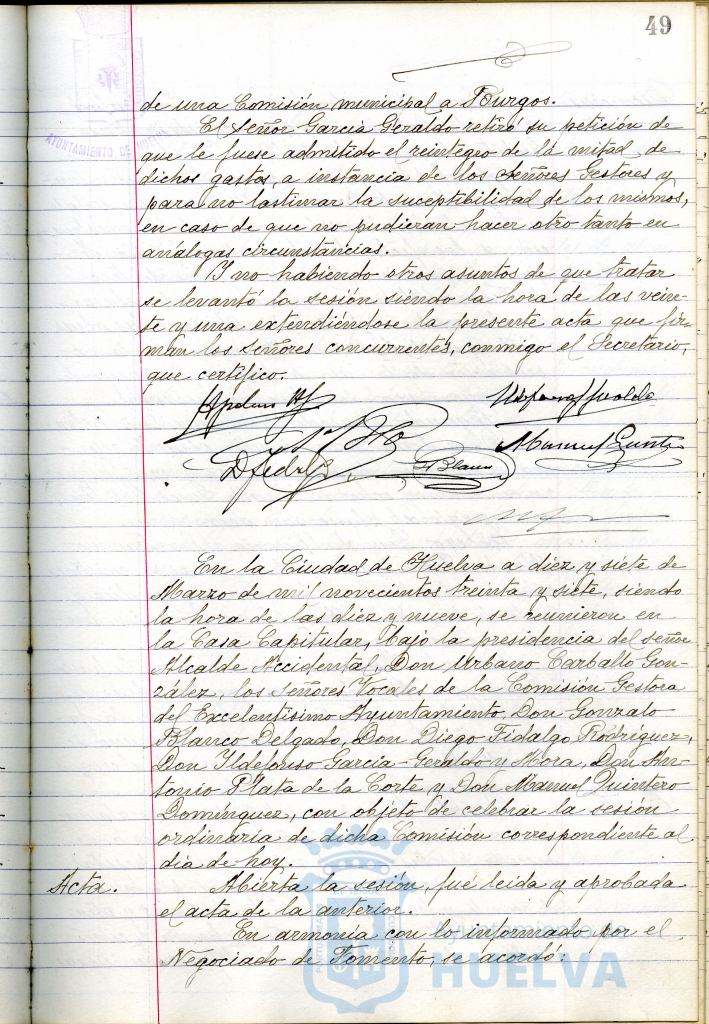 49
AYUNTAMIENTO DE HUELVA
de una Comisión municipal a Burgos.
El Señor García Geraldo retiró su petición de
que le fuese admitido el reintegro de la mitad de
dichos gastos, a instancia de los Señores Gestores y
para no lastimar la suceptibilidad de los mismos,
en caso de que no pudieran hacer otro tanto en
análogas circunstancias.
Y no habiendo otros asuntos de que tratar
se levantó la sesión siendo la hora de las vein-
te y una extendiéndose la presente acta que fir-
man los Señores concurrentes, conmigo el Secretario,
que certifico.
Manuel Quintero
D Fidalgo
G Blanco
En la Ciudad de Huelva a diez y siete de
Marzo de mil novecientos treinta y siete, siendo
la hora de las diez y nueve, se reunieron en
la Casa Capitular, bajo la presidencia del señor
Alcalde Accidental, Don Urbano Carballo Gon-
zález, los Señores Vocales de la Comisión Gestora
del Excelentísimo Ayuntamiento, Don Gonzalo
Blanco Delgado, Don Diego Fidalgo Rodríguez,
Don Yldefonso García-Geraldo y Mora, Don An-
tonio Plata de la Corte y Don Manuel Quintero
Domínguez, con objeto de celebrar la sesión
ordinaria de dicha Comisión correspondiente al
día de hoy.
Acta. Abierta la sesión, fué leida y aprobada
el acta de la anterior.
En armonía con lo informado por el
Negociado de Fomento, se acordó:
HUELVA